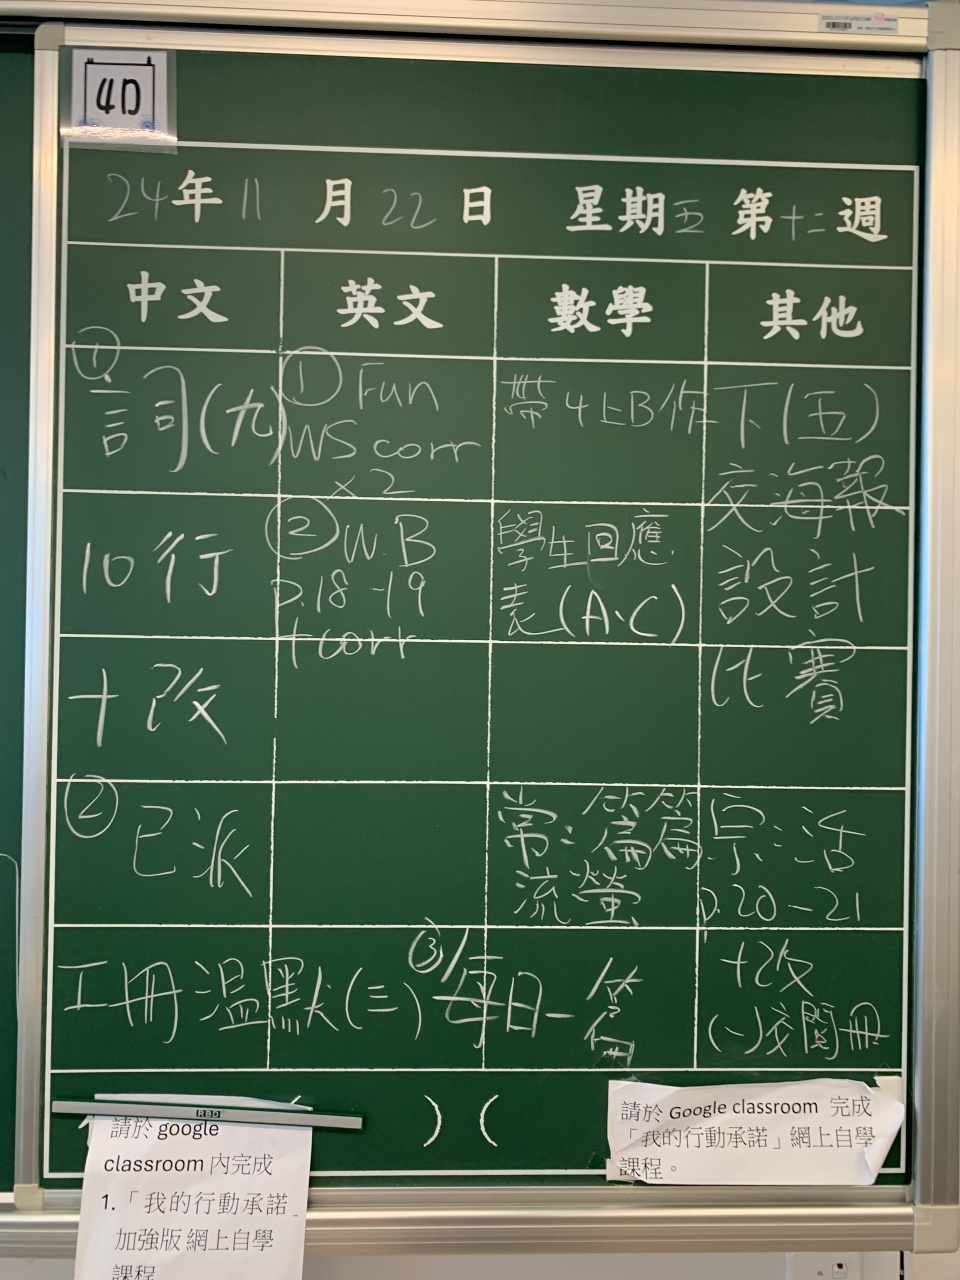 4D
24年11月22日 星期五 第十二週
中文 英文 數學 其他
① 詞(九)
10行
十改
② 已派
工冊 溫默(三) ③/每日一篇
① Fun
WS corr
x2
② W.B
p.18-19
+corr
帶4上B作
學生回應
表(A、C)
常:篇篇
流螢
下(五)
交海報
設計
比賽
宗:活
p.20-21
十改
(一)交閱冊
) (
RBD
請於 google
classroom 內完成
1.「我的行動承諾」
加強版 網上自學
課程
請於 Google classroom 完成
「我的行動承諾」網上自學
課程。